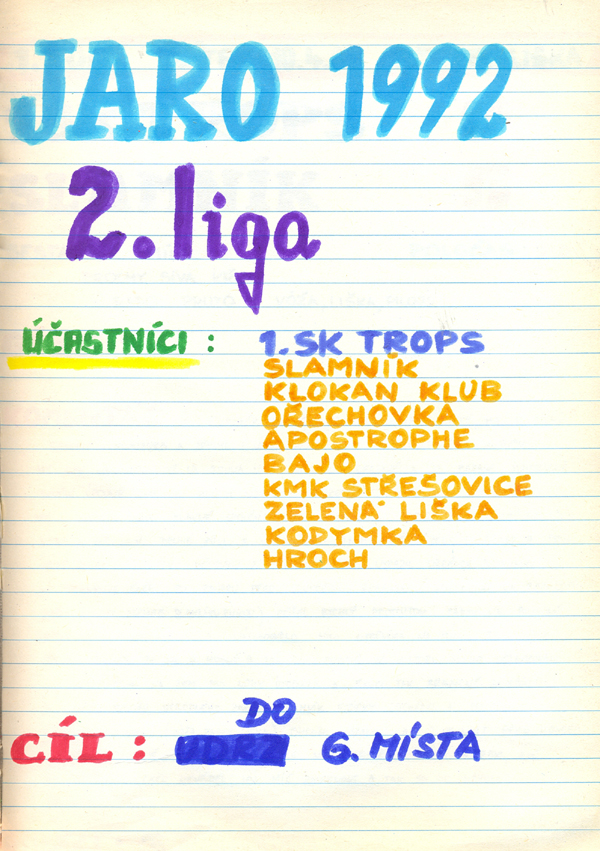 JARO 1992
2. liga
ÚČASTNÍCI : 1. SK TROPS
SLAMNÍK
KLOKAN KLUB
OŘECHOVKA
APOSTROPHE
BAJO
KMK STŘEŠOVICE
ZELENÁ LIŠKA
KODYMKA
HROCH
DO
CÍL : 6. MÍSTA